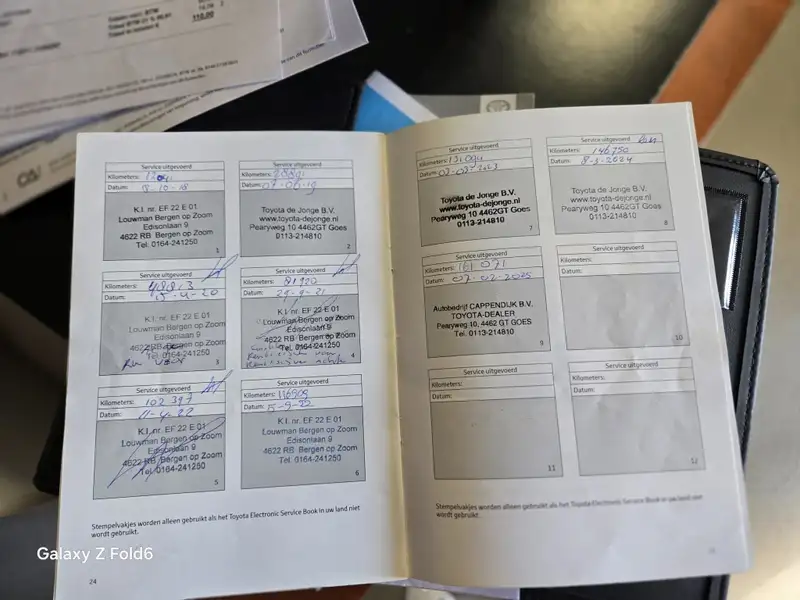 110,00
Service uitgevoerd
Kilometers:
Datum: 8-10-18
K.I. nr. EF 22 E 01
Louwman Bergen op Zoom
Edisonlaan 9
4622 RB Bergen op Zoom
Tel. 0164-241250
1
Service uitgevoerd
Kilometers:
Datum: 07-06-19
Toyota de Jonge B.V.
www.toyota-dejonge.nl
Pearyweg 10 4462GT Goes
0113-214810
2
Service uitgevoerd
Kilometers: 48813
Datum: 15-4-20
K.I. nr. EF 22 E 01
Louwman Bergen op Zoom
Edisonlaan 9
4622 RB Bergen op Zoom
Tel. 0164-241250
3
Service uitgevoerd
Kilometers: 81920
Datum: 29-9-21
K.I. nr. EF 22 E 01
Louwman Bergen op Zoom
Edisonlaan 9
4622 RB Bergen op Zoom
Tel. 0164-241250
4
Service uitgevoerd
Kilometers: 102397
Datum: 11-4-22
K.I. nr. EF 22 E 01
Louwman Bergen op Zoom
Edisonlaan 9
4622 RB Bergen op Zoom
Tel. 0164-241250
5
Service uitgevoerd
Kilometers:
Datum: 5-9-22
K.I. nr. EF 22 E 01
Louwman Bergen op Zoom
Edisonlaan 9
4622 RB Bergen op Zoom
Tel. 0164-241250
6
Stempelvakjes worden alleen gebruikt als het Toyota Electronic Service Book in uw land niet
wordt gebruikt.
24
Service uitgevoerd
Kilometers:
Datum: 02-02-2023
Toyota de Jonge B.V.
www.toyota-dejonge.nl
Pearyweg 10 4462GT Goes
0113-214810
7
Service uitgevoerd
Kilometers: 146750
Datum: 8-3-2024
Toyota de Jonge B.V.
www.toyota-dejonge.nl
Pearyweg 10 4462GT Goes
0113-214810
8
Service uitgevoerd
Kilometers: 161 071
Datum: 07-02-2025
Autobedrijf CAPPENDIJK B.V.
TOYOTA-DEALER
Pearyweg 10, 4462 GT GOES
Tel. 0113-214810
9
Service uitgevoerd
Kilometers:
Datum:
10
Service uitgevoerd
Kilometers:
Datum:
11
Service uitgevoerd
Kilometers:
Datum:
12
Stempelvakjes worden alleen gebruikt als het Toyota Electronic Service Book in uw land niet
wordt gebruikt.
Galaxy Z Fold6